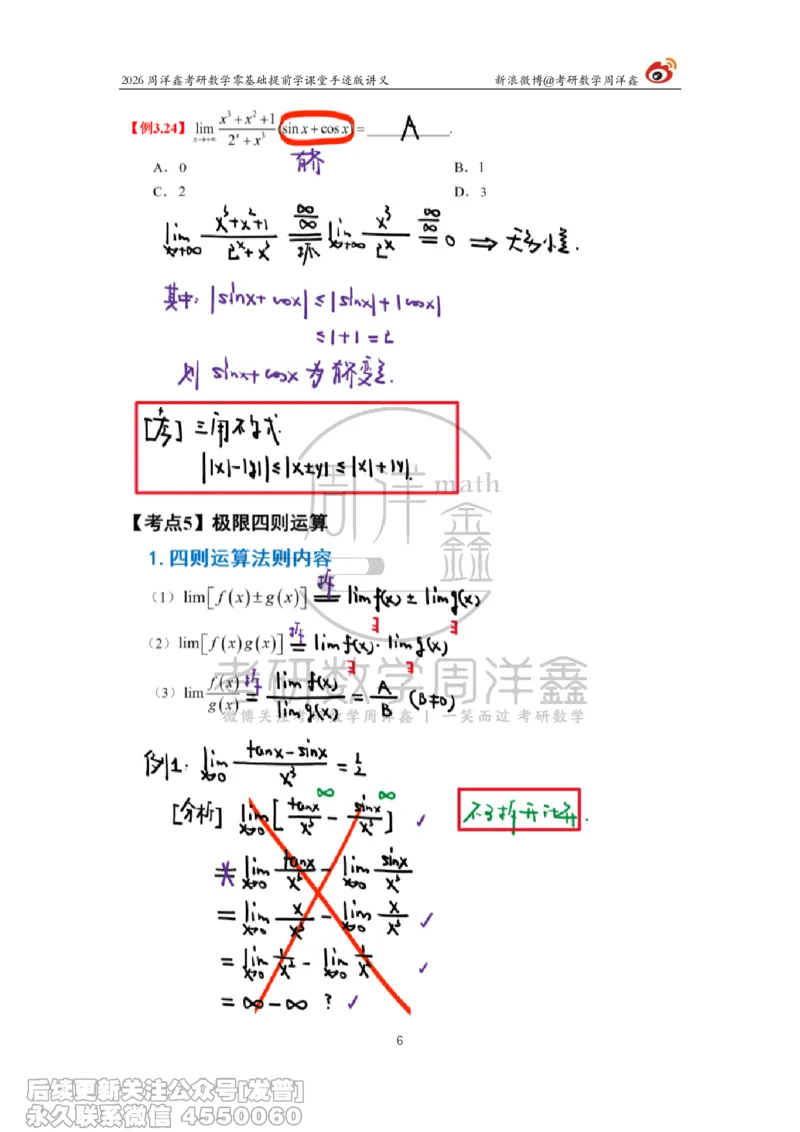 2026 周洋鑫考研数学零基础提前学课堂手迹版讲义 新浪微博@考研数学周洋鑫
【例3.24】 lim_{x→+∞} (x³+x²+1)/(2ˣ+x³) (sin x+cos x) = A .
有界
A. 0 B. 1
C. 2 D. 3
lim_{x→+∞} (x³+x²+1)/(2ˣ+x³) =(∞/∞)(抓) lim_{x→+∞} x³/2ˣ =(∞/∞) 0 ⇒ 无穷小量.
其中: |sinx+cosx| ≤ |sinx|+|cosx|
≤ 1+1 = 2
则 sinx+cosx 为有界变量.
三角不等式
||x|-|y|| ≤ |x±y| ≤ |x|+|y|.
周洋 math
鑫
【考点5】极限四则运算
1.四则运算法则内容
(1) lim[f(x)±g(x)] =(拆) lim f(x) ± lim g(x)
∃ ∃
(2) lim[f(x)g(x)] =(拆) lim f(x)· lim g(x)
∃ ∃
(3) lim f(x)/g(x) =(拆) lim f(x)/lim g(x) = A/B (B≠0)
考研数学周洋鑫
微博关注考研数学周洋鑫 | 一笑而过 考研数学
例1. lim_{x→0} (tanx-sinx)/x³ = 1/2
[分析] lim_{x→0} [tanx/x³ - sinx/x³] ✓ 不可拆开计算.
∞ ∞
= lim_{x→0} tanx/x³ - lim_{x→0} sinx/x³
= lim_{x→0} x/x³ - lim_{x→0} x/x³ ✓
= lim_{x→0} 1/x² - lim_{x→0} 1/x² ✓
= ∞-∞ ? ✓
6
后续更新关注公众号[发普]
永久联系微信 4550060